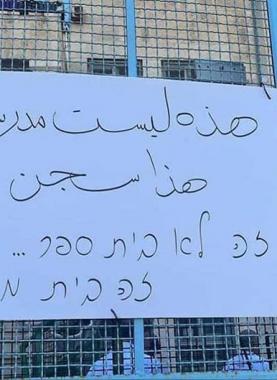 هذه ليست مدرس
هذا سجن
זה לא בית ספר ...
זה בית מ